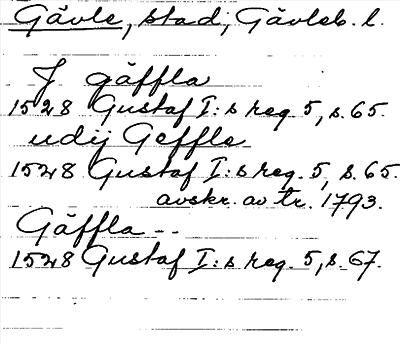 Gävle, stad, Gävleb. l.
J gäffla
1528 Gustaf I:s reg. 5, s. 65.
udij Geffle
1528 Gustaf I:s reg. 5, s. 65.
avskr. av tr. 1793.
Gäffla --
1528 Gustaf I:s reg. 5, s. 67.